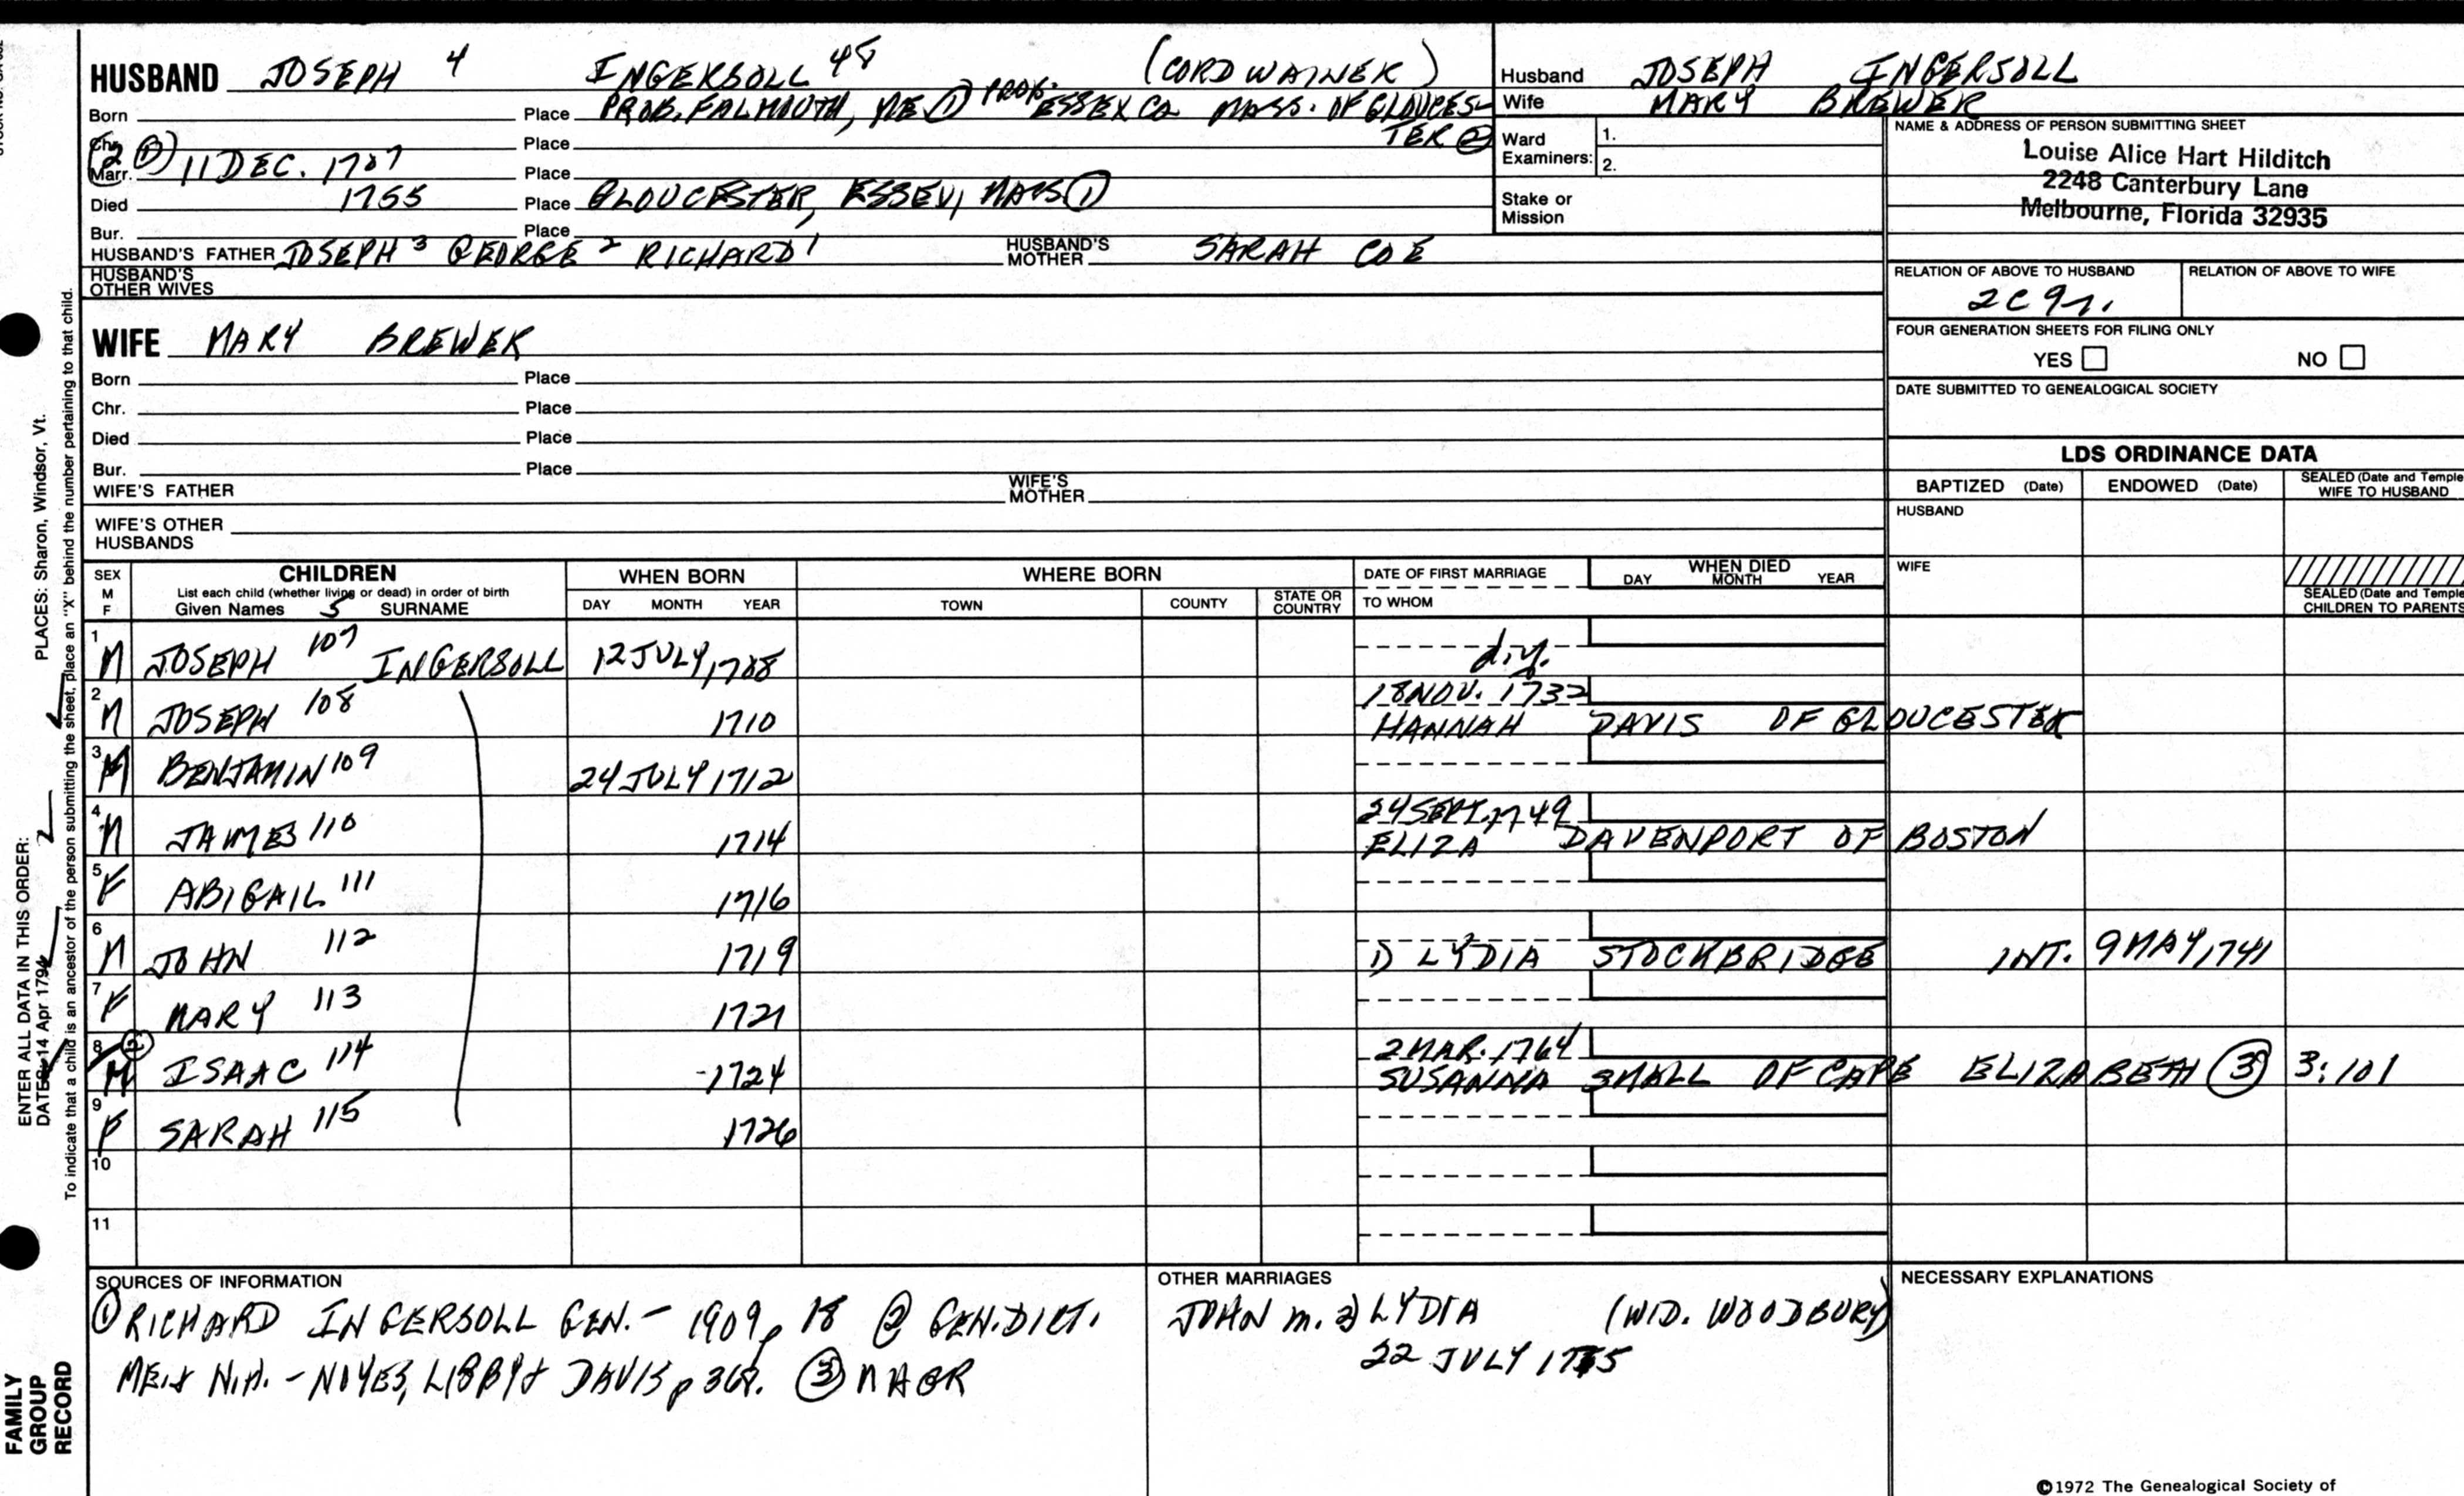 HUSBAND JOSEPH 4 INGERSOLL 48 (CORDWAINER)
Born Place PROB. FALMOUTH, ME ① PROB. ESSEX CO MASS. OF GLOUCES-
Chr. Place TER ②
Marr. ② ① 11 DEC. 1707 Place
Died 1755 Place GLOUCESTER, ESSEX, MASS ①
Bur. Place
HUSBAND'S FATHER JOSEPH 3 GEORGE 2 RICHARD 1 HUSBAND'S MOTHER SARAH COE
HUSBAND'S OTHER WIVES
WIFE MARY BREWER
Born Place
Chr. Place
Died Place
Bur. Place
WIFE'S FATHER WIFE'S MOTHER
WIFE'S OTHER HUSBANDS
Husband JOSEPH INGERSOLL
Wife MARY BREWER
Ward Examiners: 1.
2.
Stake or Mission
NAME & ADDRESS OF PERSON SUBMITTING SHEET
Louise Alice Hart Hilditch
2248 Canterbury Lane
Melbourne, Florida 32935
RELATION OF ABOVE TO HUSBAND RELATION OF ABOVE TO WIFE
2C 9r.
FOUR GENERATION SHEETS FOR FILING ONLY
YES NO
DATE SUBMITTED TO GENEALOGICAL SOCIETY
LDS ORDINANCE DATA
BAPTIZED (Date) ENDOWED (Date) SEALED (Date and Temple) WIFE TO HUSBAND
HUSBAND
WIFE
SEALED (Date and Temple) CHILDREN TO PARENTS
SEX M F
CHILDREN
List each child (whether living or dead) in order of birth
Given Names 5 SURNAME
WHEN BORN
DAY MONTH YEAR
WHERE BORN
TOWN COUNTY STATE OR COUNTRY
DATE OF FIRST MARRIAGE
TO WHOM
WHEN DIED
DAY MONTH YEAR
1 M JOSEPH 107 INGERSOLL 12 JULY, 1708 d.y.
2 M JOSEPH 108 1710 18 NOV. 1732
HANNAH DAVIS OF GLOUCESTER
3 M BENJAMIN 109 24 JULY 1712
4 M JAMES 110 1714 24 SEPT. 1749
ELIZA DAVENPORT OF BOSTON
5 F ABIGAIL 111 1716
6 M JOHN 112 1719 1) LYDIA STOCKBRIDGE INT. 9 MAY, 1741
7 F MARY 113 1721
8 ② M ISAAC 114 -1724 2 MAR. 1764
SUSANNA SMALL OF CAPE ELIZABETH ③ 3:101
9 F SARAH 115 1726
10
11
SOURCES OF INFORMATION
① RICHARD INGERSOLL GEN. - 1909 p 18 ② GEN. DICT.
ME. & N.H. - NOYES, LIBBY & DAVIS p 368. ③ MAGR
OTHER MARRIAGES
JOHN m. 2) LYDIA (WID. WOODBURY)
22 JULY 1755
NECESSARY EXPLANATIONS
©1972 The Genealogical Society of
PLACES: Sharon, Windsor, Vt.
ENTER ALL DATA IN THIS ORDER:
DATES: 14 Apr 1794
To indicate that a child is an ancestor of the person submitting the sheet, place an "X" behind the number pertaining to that child.
FAMILY
GROUP
RECORD